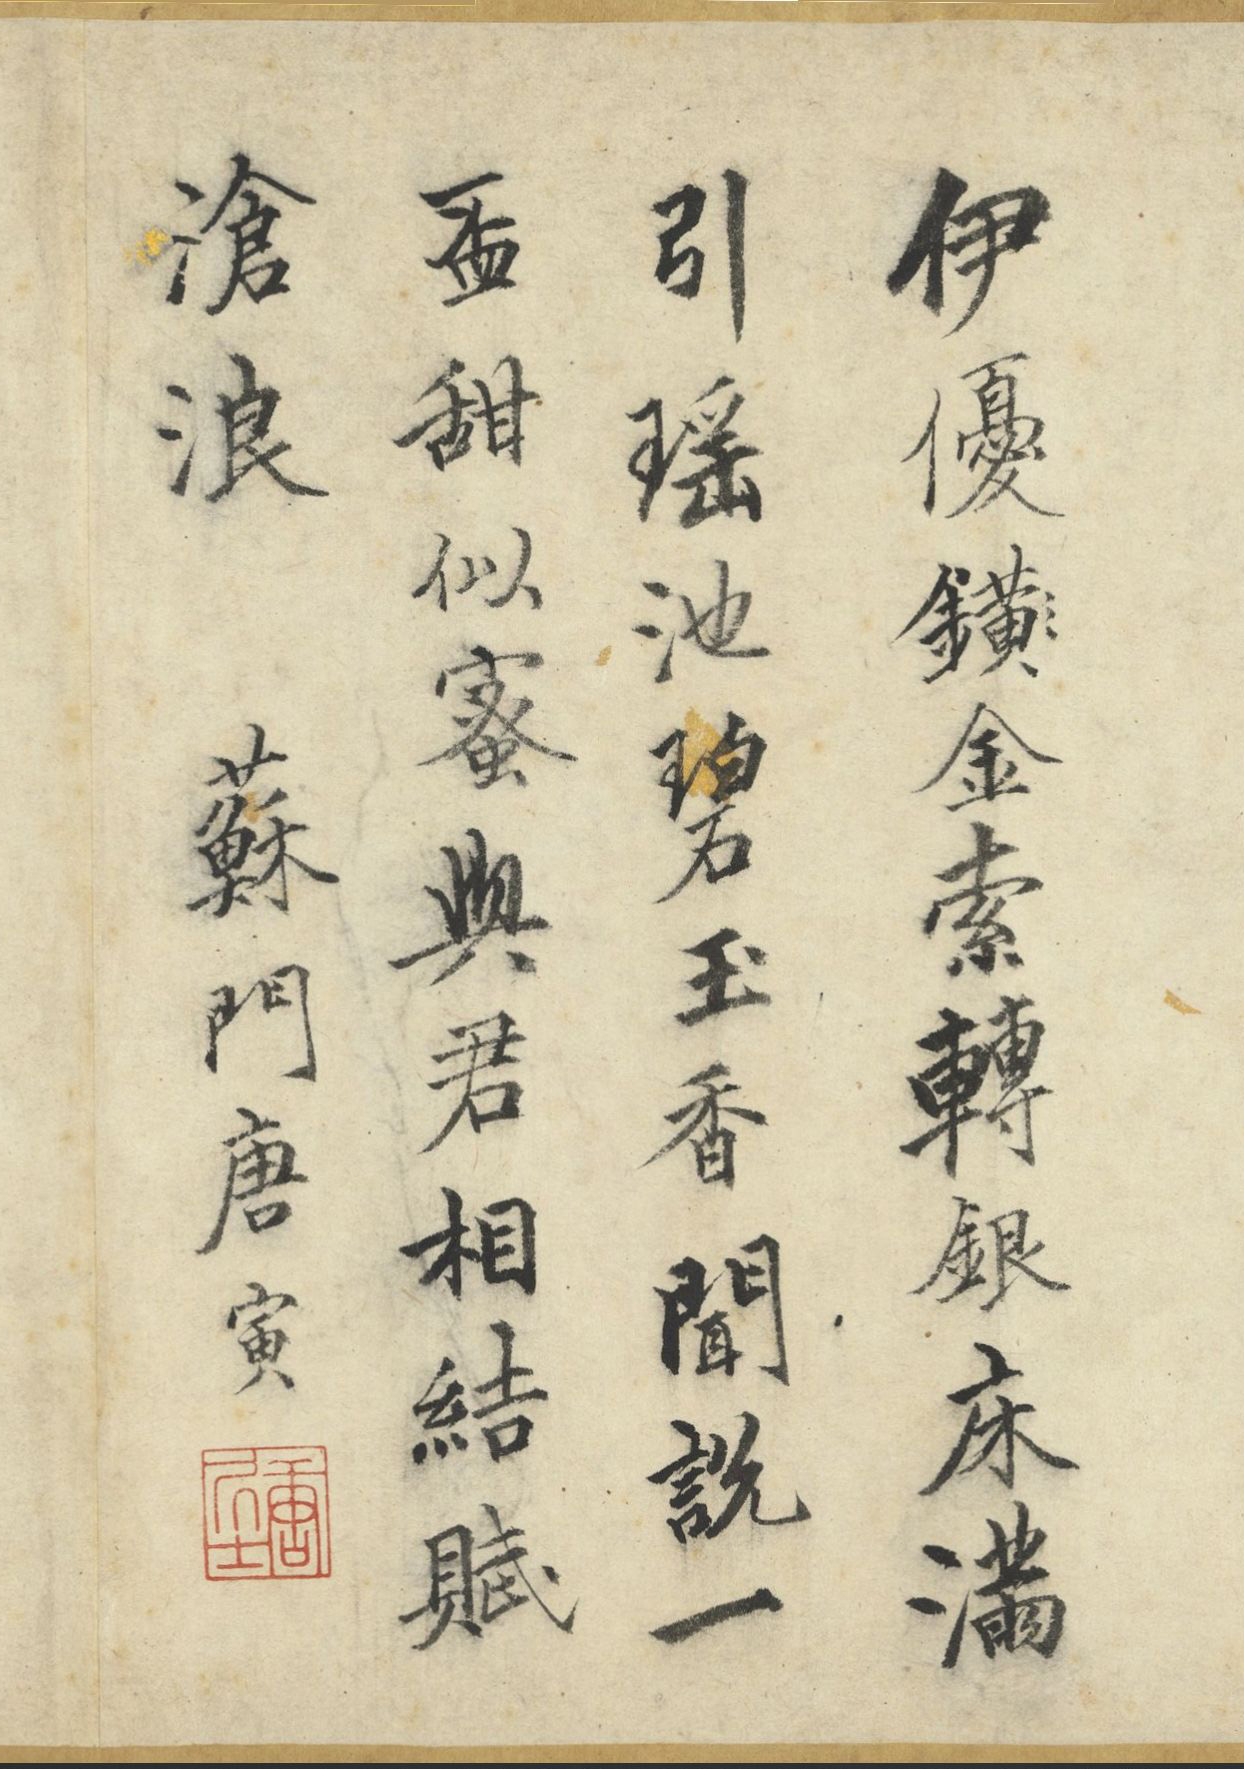 伊優鐄金索轉銀床滿
引瑶池碧玉香聞説一
盃甜似蜜與君相結賦
滄浪 蘇門唐寅
唐居士